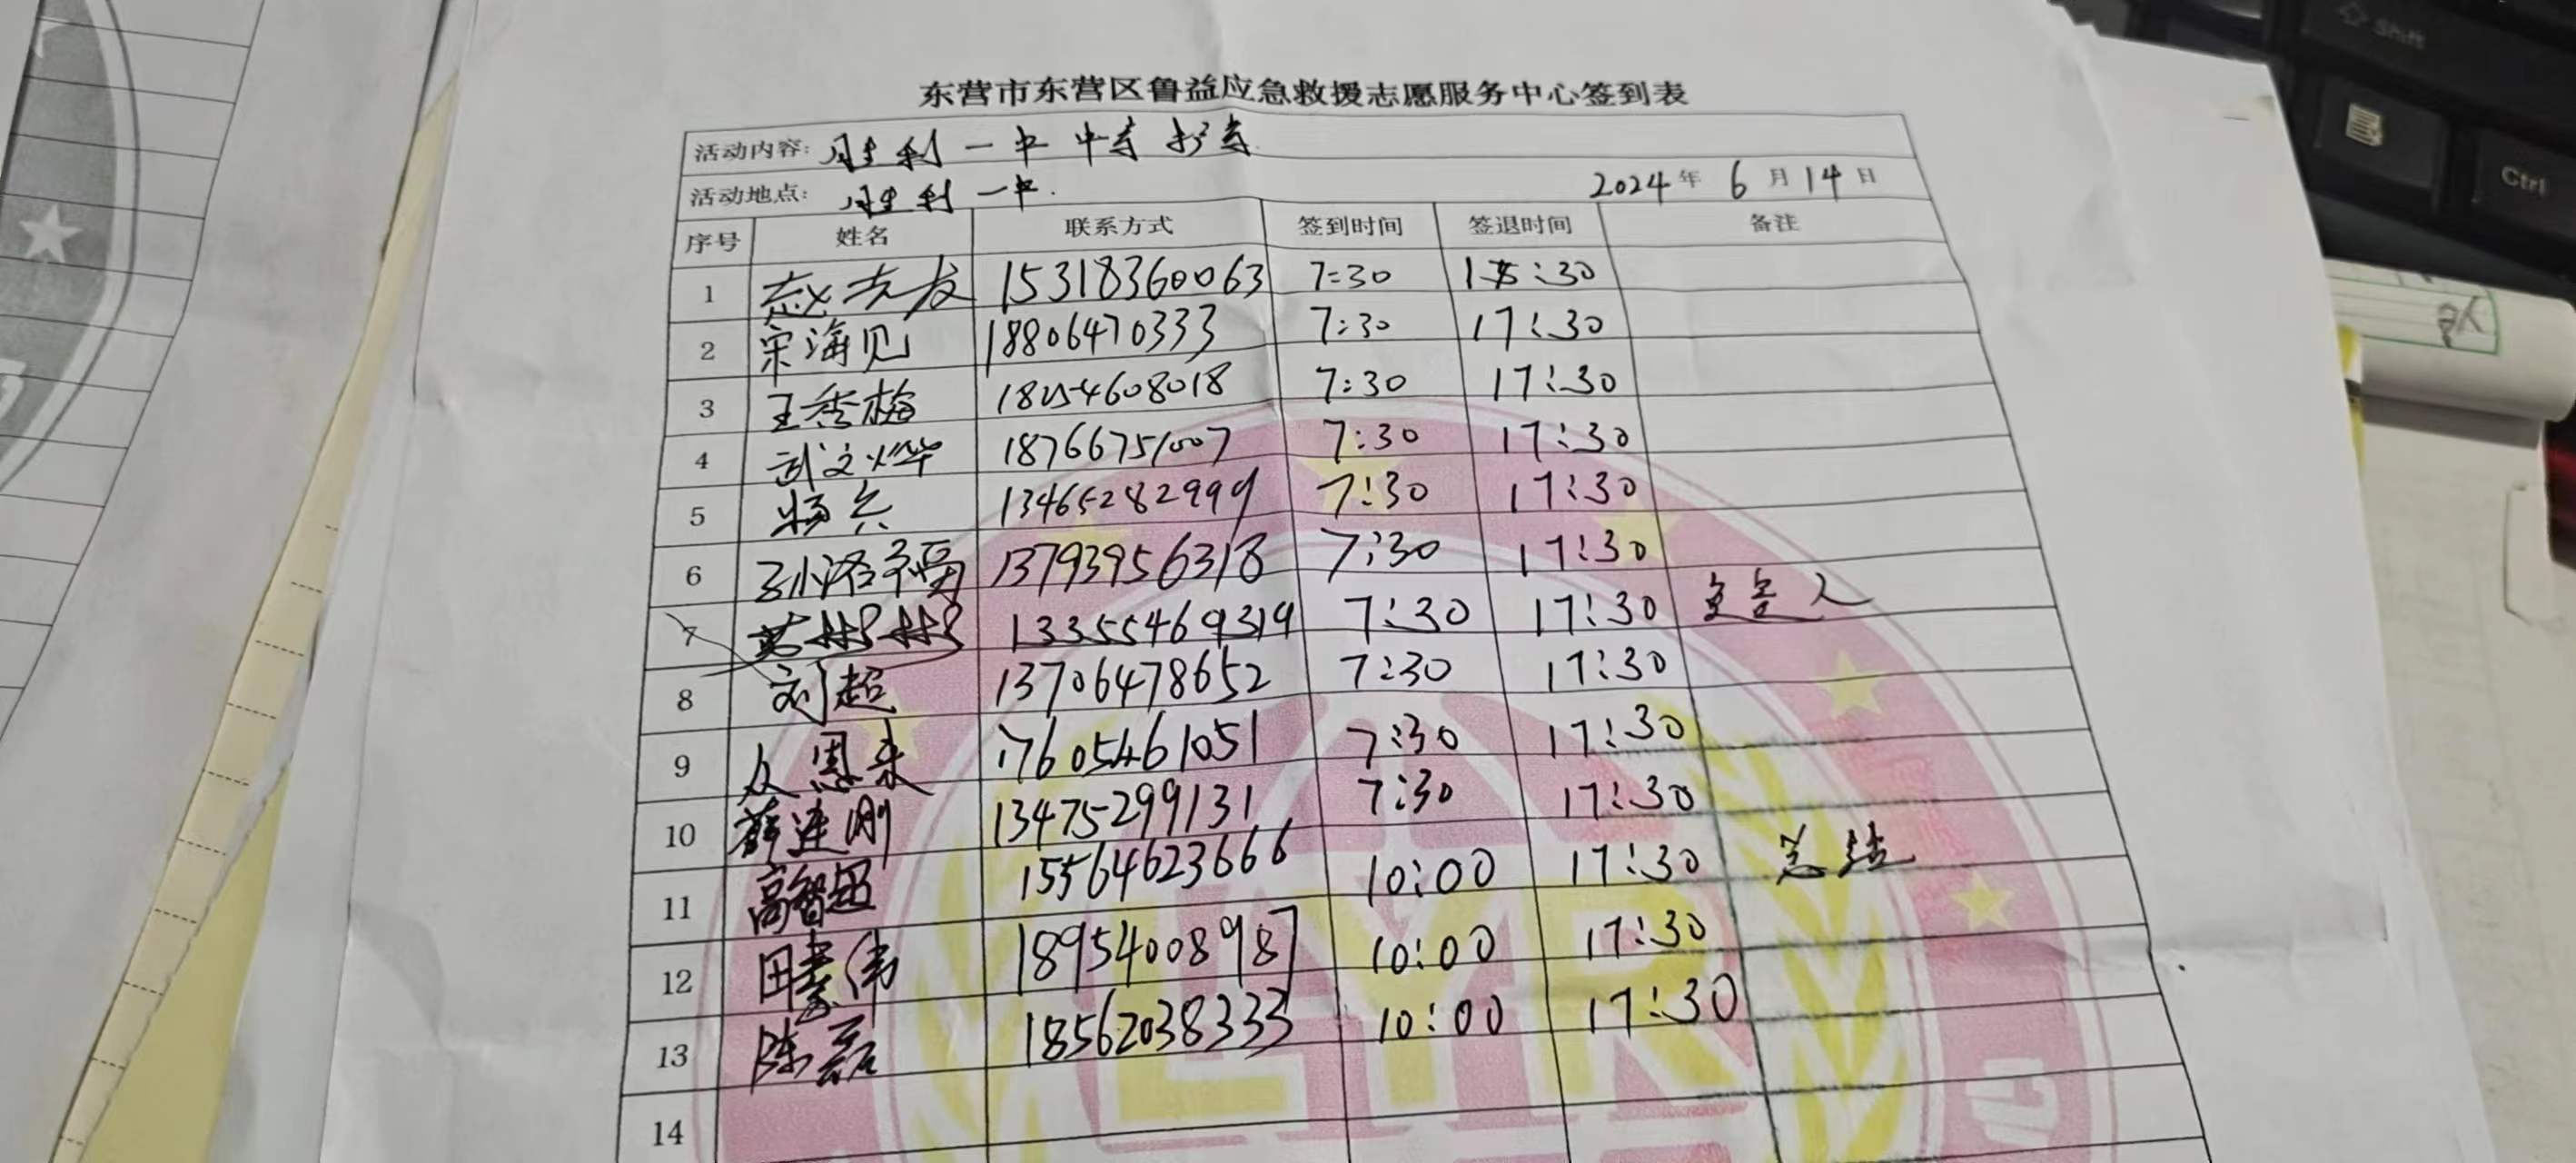 东营市东营区鲁益应急救援志愿服务中心签到表
活动内容: 胜利一中中考护考
活动地点: 胜利一中. 2024年 6月14日
序号 姓名 联系方式 签到时间 签退时间 备注
1 赵志友 15318360063 7:30 17:30
2 宋海见 18806470333 7:30 17:30
3 王秀梅 18254608018 7:30 17:30
4 武文烨 18766751007 7:30 17:30
5 杨兵 13465282999 7:30 17:30
6 孙洛福 13793956318 7:30 17:30
7 苏彬彬 13355469319 7:30 17:30 负责人
8 刘超 13706478652 7:30 17:30
9 从恩来 17605461051 7:30 17:30
10 薛连刚 13475299131 7:30 17:30
11 高智超 15564623666 10:00 17:30 总结
12 田素伟 18954008987 10:00 17:30
13 陈磊 18562038333 10:00 17:30
14
LYR
Shift
Ctrl